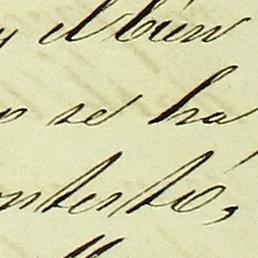 y el buen
o se ha
ntento,